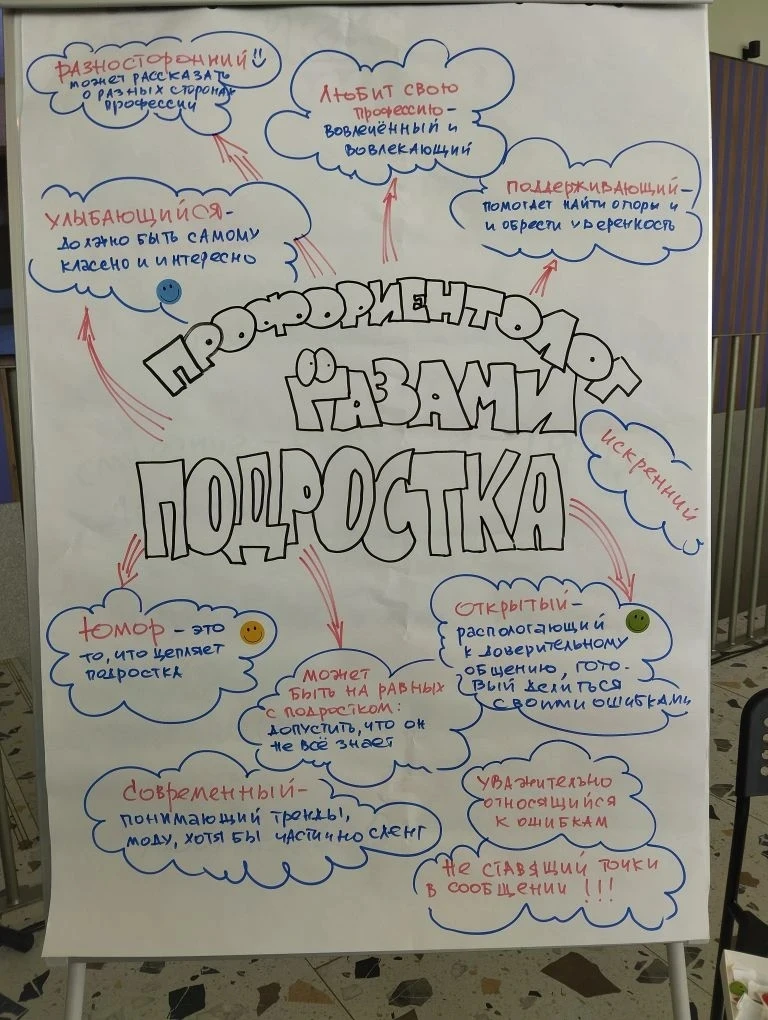 РАЗНОСТОРОННИЙ
МОЖЕТ РАССКАЗАТЬ
О РАЗНЫХ СТОРОНАХ
ПРОФЕССИИ
ЛЮБИТ СВОЮ
ПРОФЕССИЮ-
ВОВЛЕЧЁННЫЙ И
ВОВЛЕКАЮЩИЙ
ПОДДЕРЖИВАЮЩИЙ-
ПОМОГАЕТ НАЙТИ ОПОРЫ И
И ОБРЕСТИ УВЕРЕННОСТЬ
УЛЫБАЮЩИЙСЯ-
ДОЛЖНО БЫТЬ САМОМУ
КЛАССНО И ИНТЕРЕСНО
ПРОФОРИЕНТОЛОГ
ГЛАЗАМИ
ПОДРОСТКА
ИСКРЕННИЙ
ЮМОР - ЭТО
ТО, ЧТО ЦЕПЛЯЕТ
ПОДРОСТКА
МОЖЕТ
БЫТЬ НА РАВНЫХ
С ПОДРОСТКОМ:
ДОПУСТИТЬ, ЧТО ОН
НЕ ВСЁ ЗНАЕТ
ОТКРЫТЫЙ-
РАСПОЛОГАЮЩИЙ
К ДОВЕРИТЕЛЬНОМУ
ОБЩЕНИЮ, ГОТО-
ВЫЙ ДЕЛИТЬСЯ
СВОИМИ ОШИБКАМИ
СОВРЕМЕННЫЙ-
ПОНИМАЮЩИЙ ТРЕНДЫ,
МОДУ, ХОТЯ БЫ ЧАСТИЧНО СЛЕНГ
УВАЖИТЕЛЬНО
ОТНОСЯЩИЙСЯ
К ОШИБКАМ
НЕ СТАВЯЩИЙ ТОЧКИ
В СООБЩЕНИИ !!!